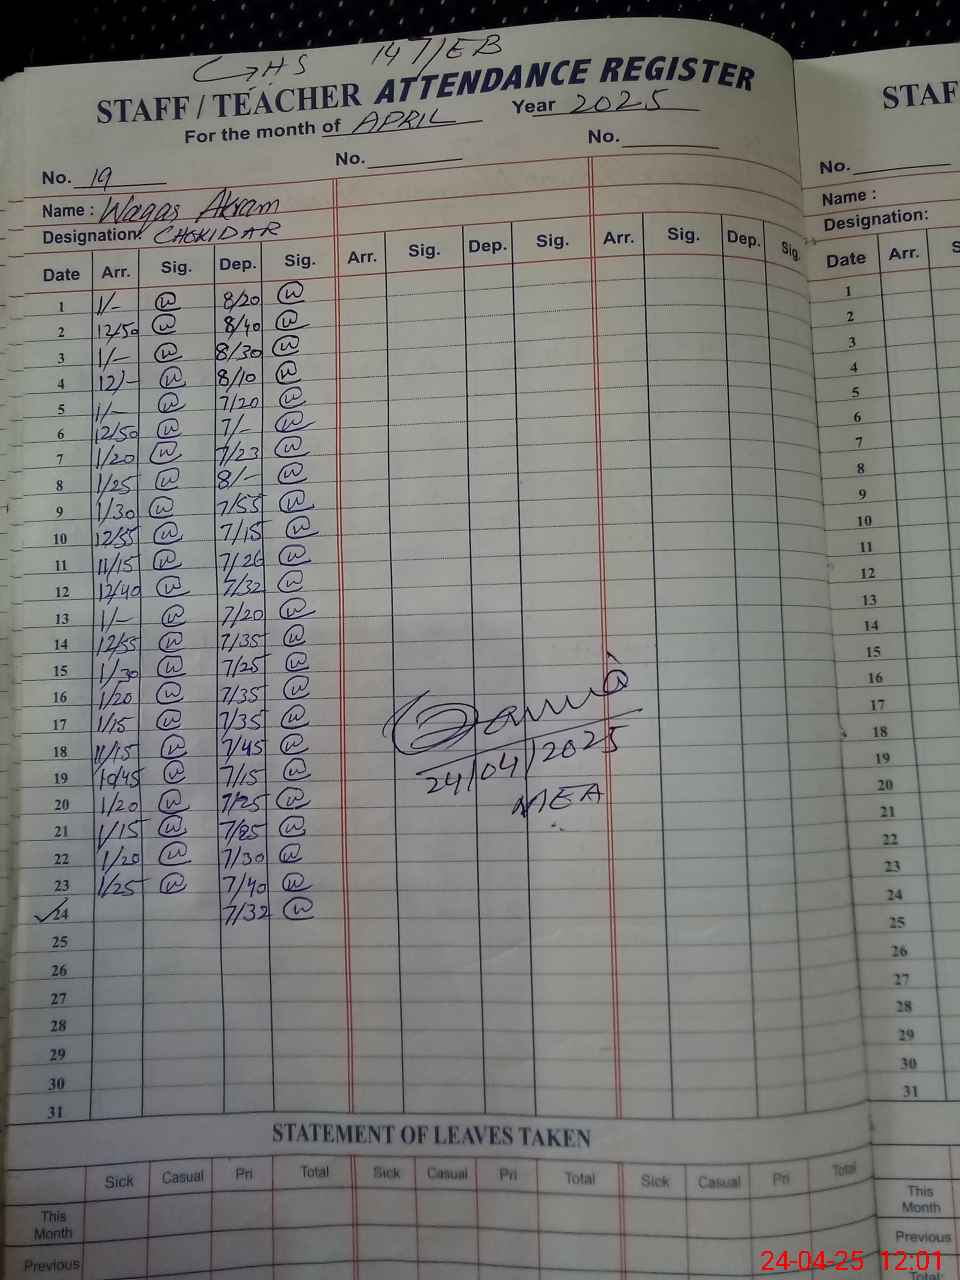 GHS 147/EB
STAFF / TEACHER ATTENDANCE REGISTER
For the month of APRIL Year 2025
No. 19 No. No.
Name : Waqas Akram
Designation: CHOKIDAR
Date Arr. Sig. Dep. Sig. Arr. Sig. Dep. Sig. Arr. Sig. Dep. Sig.
1 1/- W 8/20 W
2 12/50 W 8/40 W
3 1/- W 8/30 W
4 12/- W 8/10 W
5 1/- W 7/20 W
6 12/50 W 7/- W
7 1/20 W 7/23 W
8 1/25 W 8/- W
9 1/30 W 7/55 W
10 12/55 W 7/15 W
11 11/15 W 7/26 W
12 12/40 W 7/32 W
13 1/- W 7/20 W
14 12/55 W 7/35 W
15 1/30 W 7/25 W
16 1/20 W 7/35 W
17 1/15 W 7/35 W
18 11/15 W 7/45 W
19 10/45 W 7/15 W
20 1/20 W 7/25 W
21 1/15 W W
22 1/20 W 7/30 W
23 1/25 W 7/40 W
24 7/32 W
25
26
27
28
29
30
31
24/04/2025
MEA
STATEMENT OF LEAVES TAKEN
Sick Casual Pri Total Sick Casual Pri Total Sick Casual Pri Total
This
Month
Previous
STAF
No.
Name :
Designation:
Date Arr. S
1
2
3
4
5
6
7
8
9
10
11
12
13
14
15
16
17
18
19
20
21
22
23
24
25
26
27
28
29
30
31
This
Month
Previous
Total:
24-04-25 12:01